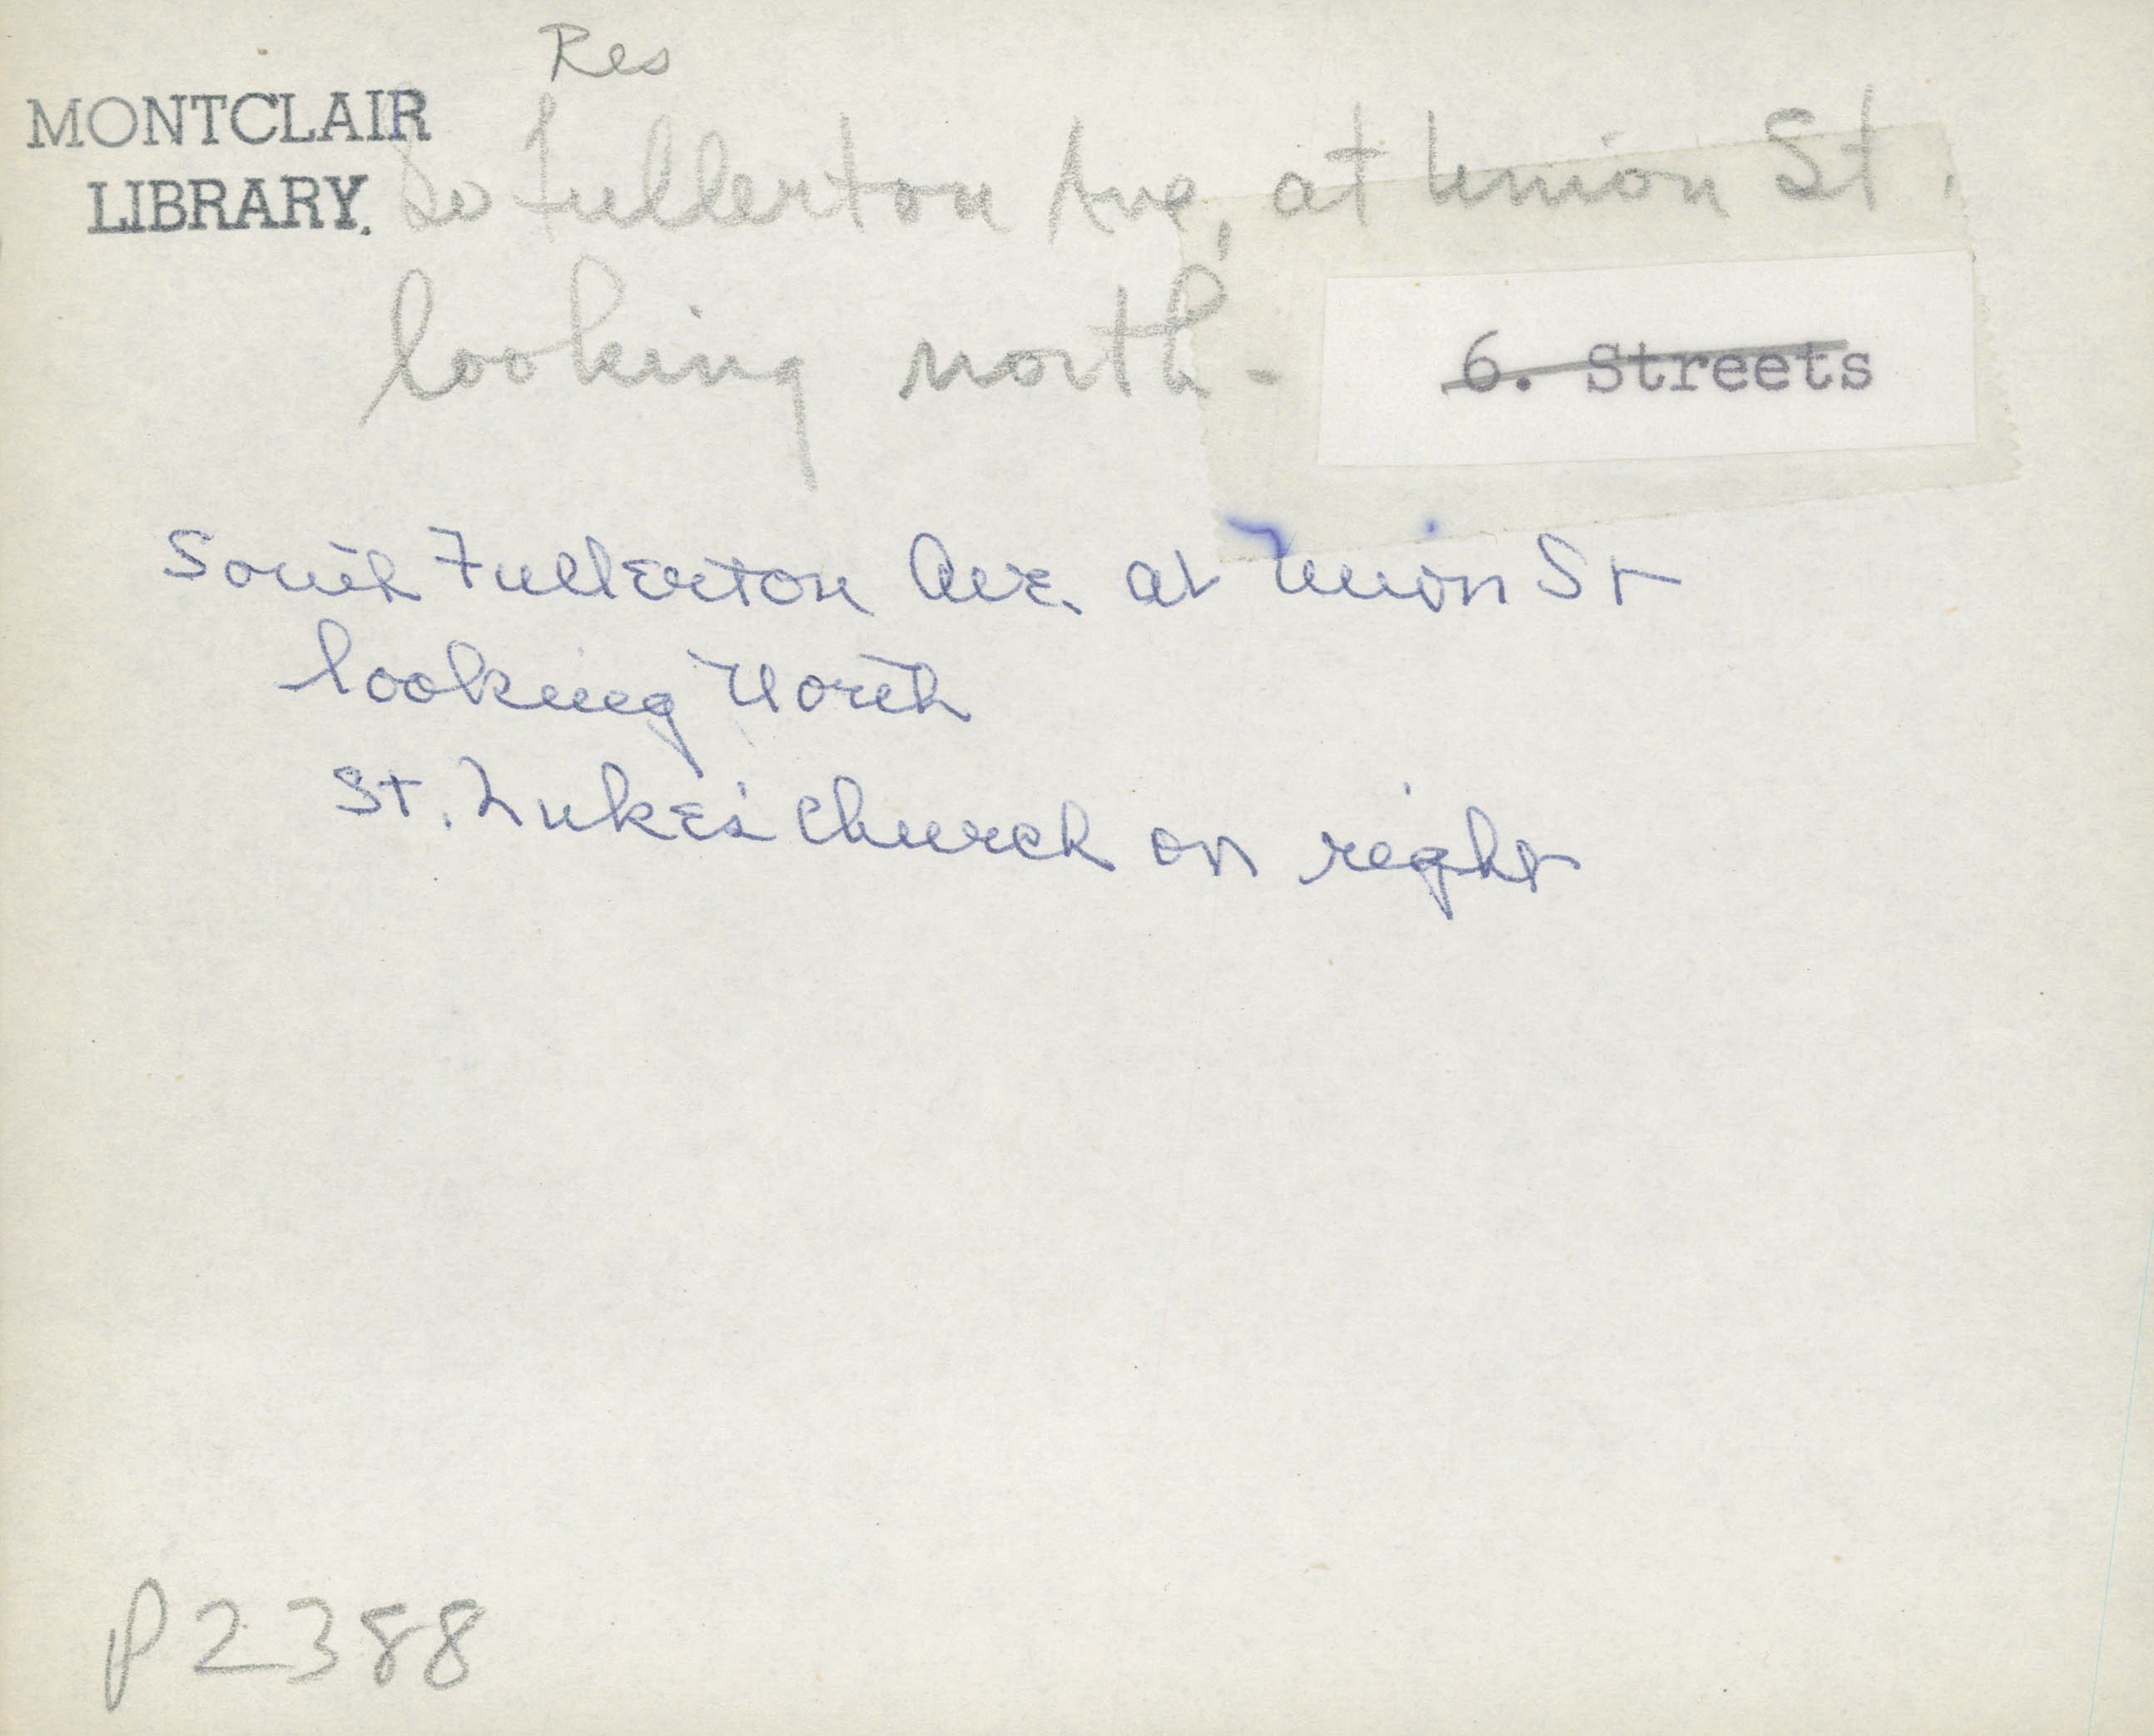 Res
MONTCLAIR
LIBRARY.
So Fullerton Ave, at Union St.
looking north-
6. Streets
South Fullerton Ave. at Union St
looking North
St. Luke's Church on right
P2388